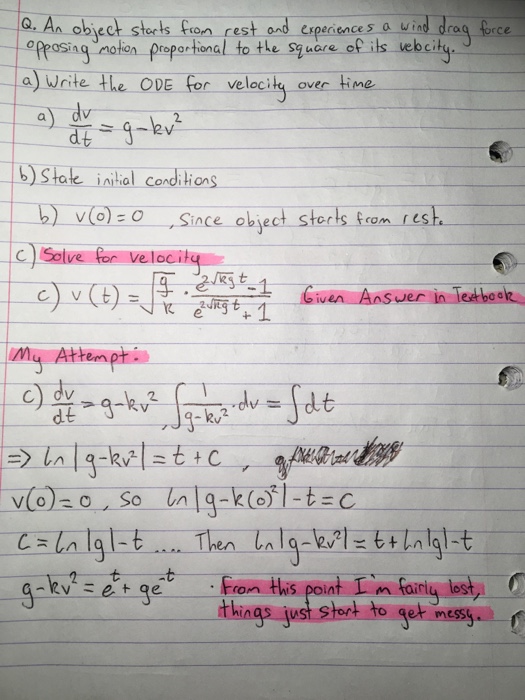 Q. An object starts from rest and experiences a wind drag force
opposing motion proportional to the square of its velocity.
a) Write the ODE for velocity over time
a) dv/dt = g-kv²
b) State initial conditions
b) v(0)=0 , since object starts from rest.
c) Solve for velocity
c) v(t) = √(g/k) · (e^(2√(kg) t) - 1)/(e^(2√(kg) t) + 1) Given Answer in Textbook
My Attempt:
c) dv/dt = g-kv² , ∫ 1/(g-kv²) · dv = ∫dt
=> ln|g-kv²| = t + c ,
v(0)=0, so ln|g-k(0)²|-t=c
c=ln|g|-t .... Then ln|g-kv²|=t+ln|g|-t
g-kv² = e^t + ge^-t · From this point I'm fairly lost,
things just start to get messy.